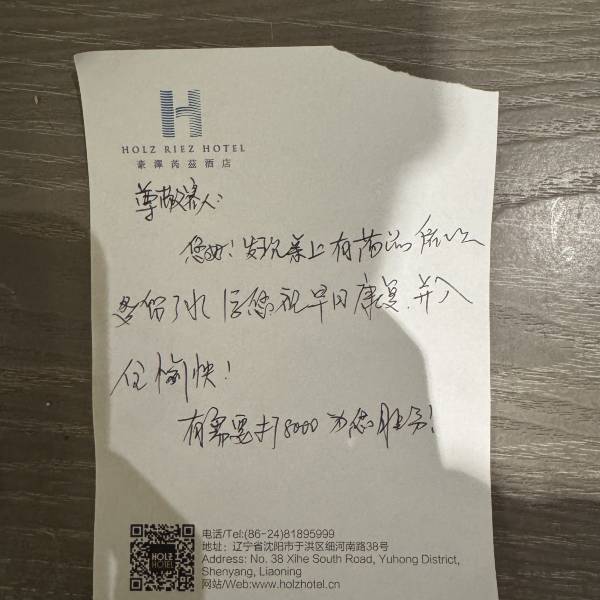 HOLZ RIEZ HOTEL
豪澤芮茲酒店
尊敬的客人:
您好!发现桌上有药品所以
多留了水 后您祝早日康复.并入
住愉快!
有需要打8000为您服务!
HOLZ
HOTEL
电话/Tel:(86-24)81895999
地址: 辽宁省沈阳市于洪区细河南路38号
Address: No. 38 Xihe South Road, Yuhong District,
Shenyang, Liaoning
网站/Web:www.holzhotel.cn